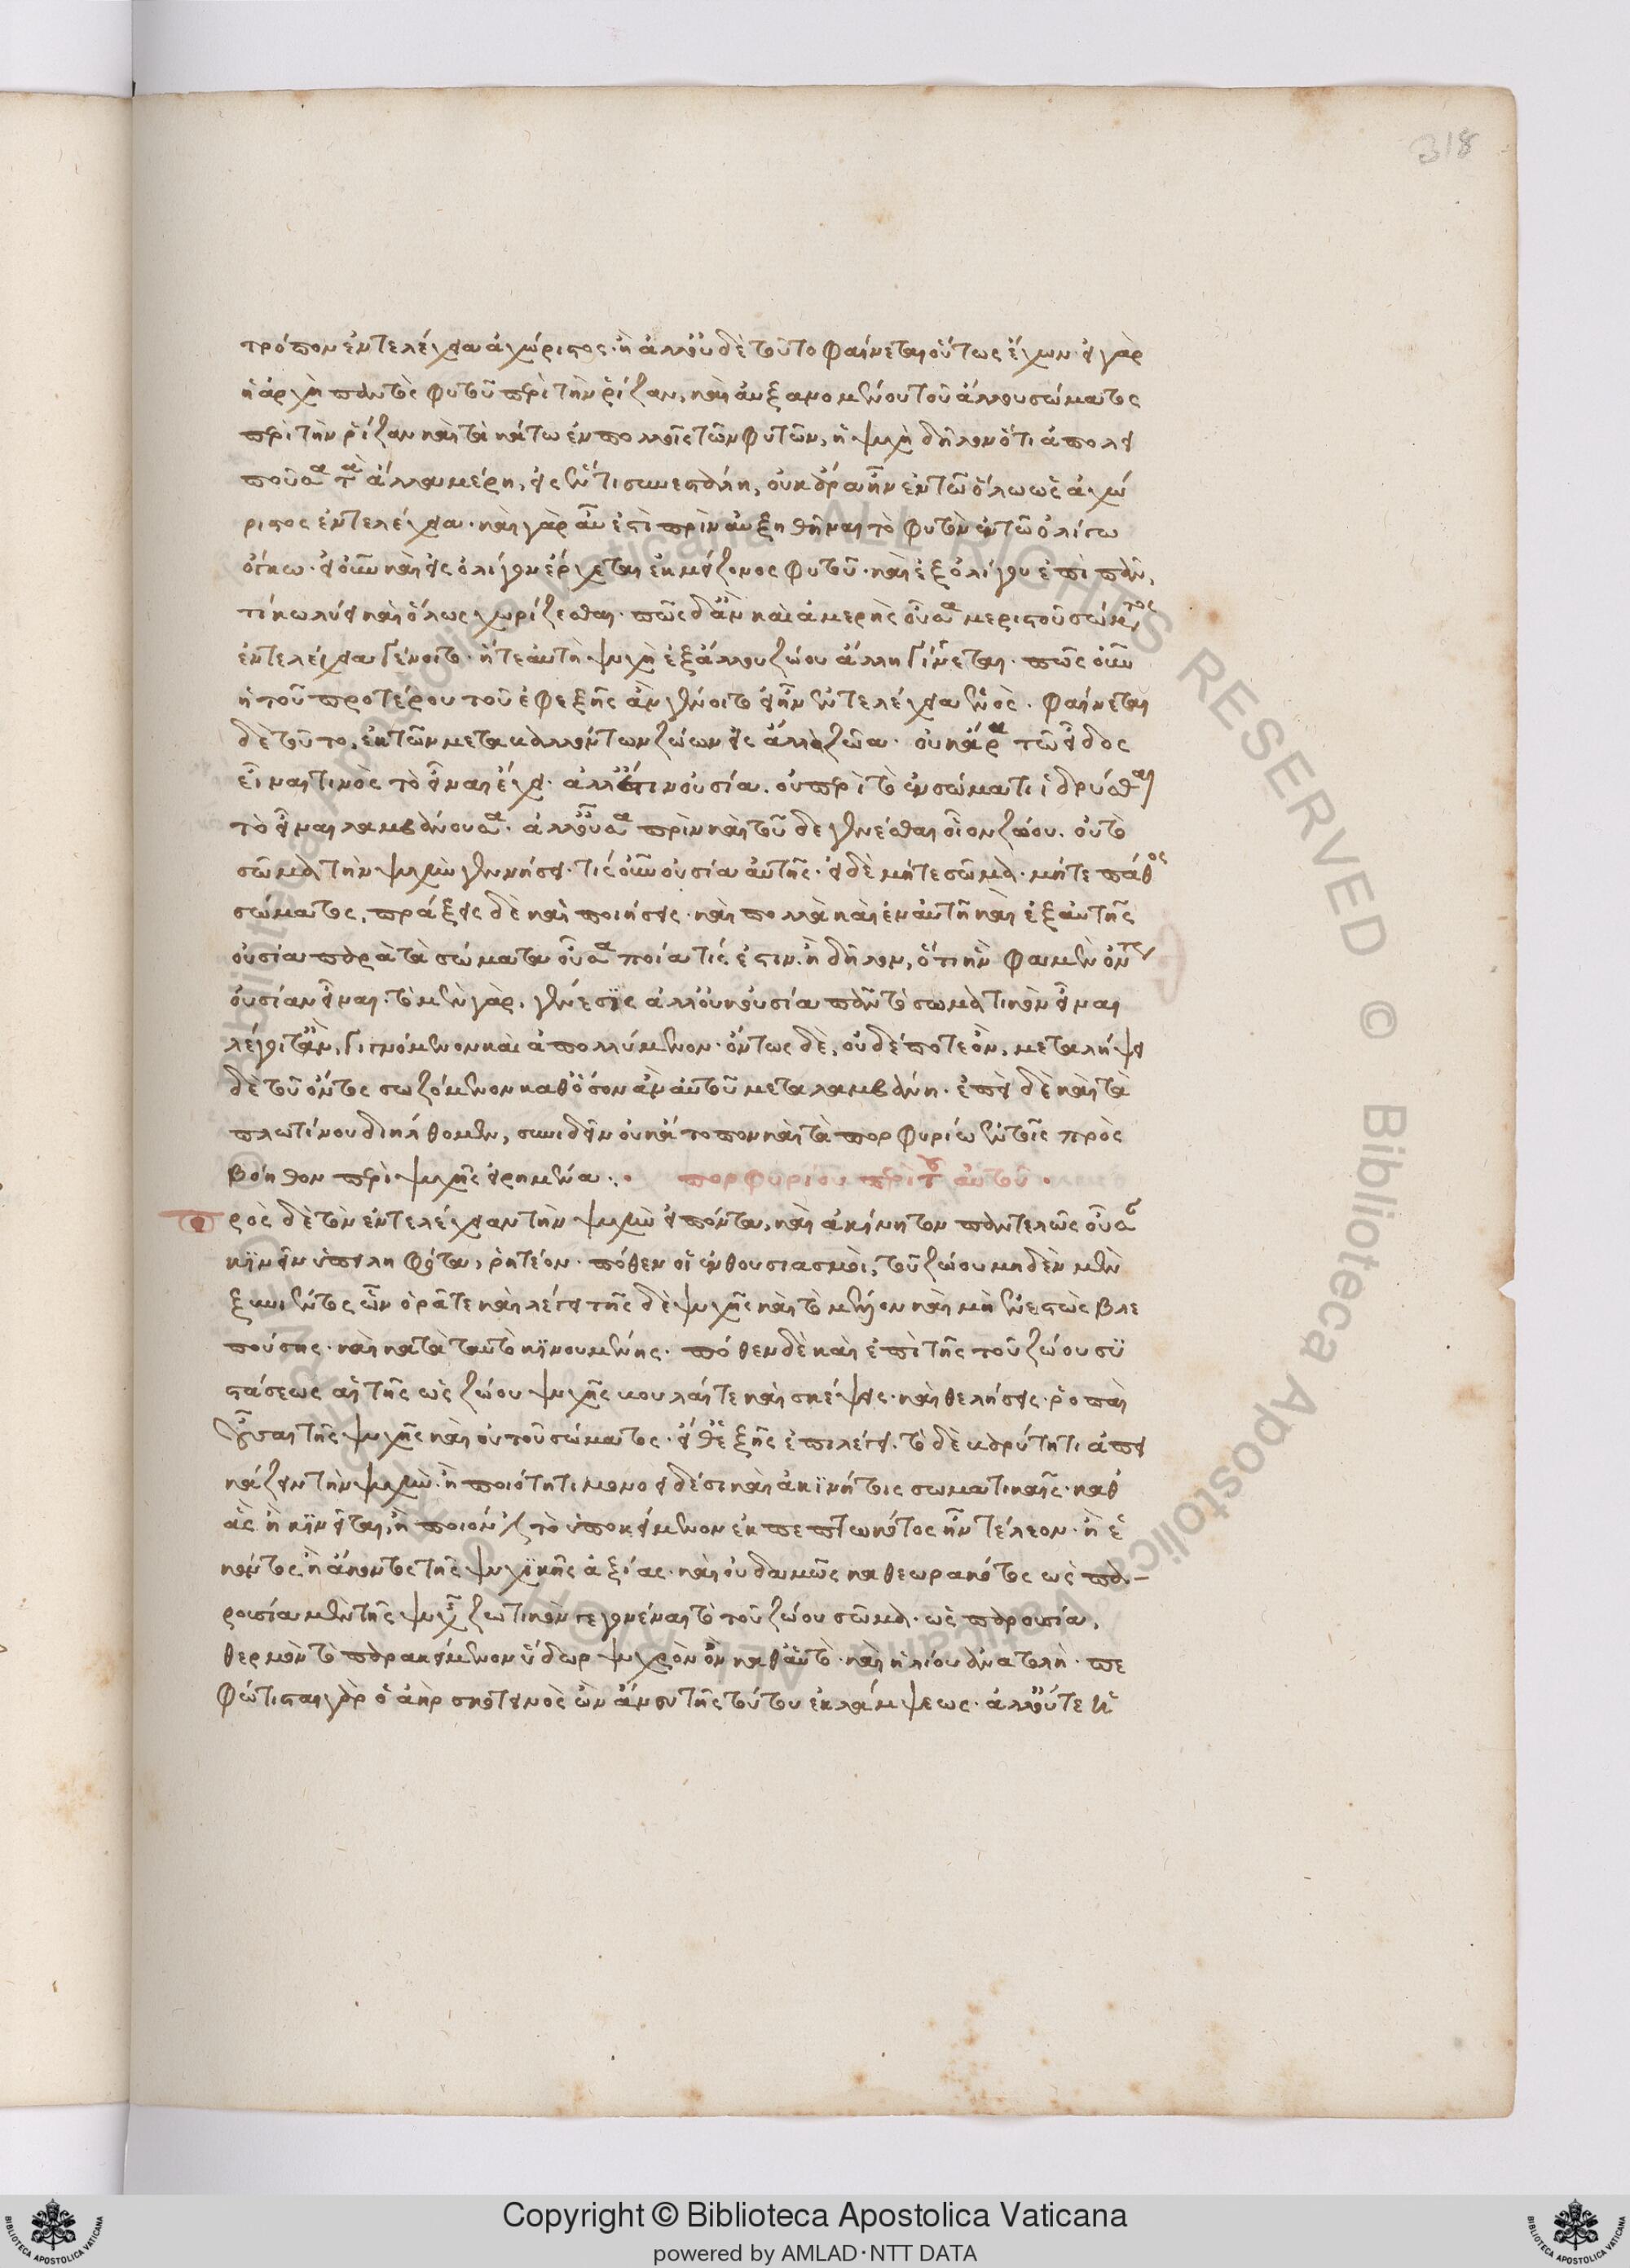 318
τρόπον ἐντελέχεια ἀχώριστος· ἢ ἀλλ' οὐδὲ τοῦτο φαίνεται οὕτως ἔχων· εἰ γὰρ
ἡ ἀρχὴ παντὸς φυτοῦ περὶ τὴν ῥίζαν, καὶ αὐξανομένου τοῦ ἄλλου σώματος
περὶ τὴν ῥίζαν καὶ τὰ κάτω ἐν πολλοῖς τῶν φυτῶν, ἡ ψυχὴ δῆλον ὅτι ἀπολει
ποῦσα τὰ ἄλλα μέρη, εἰς ἕν τι συνεστάλη, οὐκ ἄρα ἦν ἐν τῷ ὅλῳ ὡς ἀχώ
ριστος ἐντελέχεια· καὶ γὰρ αὖ ἐστὶ πρὶν αὐξηθῆναι τὸ φυτὸν ἐν τῷ ὀλίγῳ
ὄγκῳ· εἰ οὖν καὶ εἰς ὀλίγον ἔρχεται ἐκ μείζονος φυτοῦ· καὶ ἐξ ὀλίγου ἐπὶ πᾶν,
τί κωλύει καὶ ὅλως χωρίζεσθαι· πῶς δ' ἂν καὶ ἀμερὴς οὖσα μεριστοῦ σώματος
ἐντελέχεια γένοιτο· ἥ τε αὐτὴ ψυχὴ ἐξ ἄλλου ζώου ἄλλη γίνεται· πῶς οὖν
ἡ τοῦ προτέρου τοῦ ἐφεξῆς ἂν γένοιτο εἰ ἦν ἐντελέχεια ἑνός· φαίνεται
δὲ τοῦτο, ἐκ τῶν μεταβαλλόντων ζώων εἰς ἄλλα ζῶα· οὐκ ἄρα τῷ εἶδος
εἶναι τινὸς τὸ εἶναι ἔχει· ἀλλ' ἔστιν οὐσία· οὐ περὶ τὸ ἐν σώματι ἱδρύσθαι
τὸ εἶναι λαμβάνουσα· ἀλλ' οὖσα πρὶν καὶ τοῦδε γενέσθαι οἷον ζώου· οὐ τὸ
σῶμα τὴν ψυχὴν γεννήσει· τίς οὖν οὐσία αὐτῆς· εἰ δὲ μήτε σῶμα· μήτε πάθος
σώματος, πράξεις δὲ καὶ ποιήσεις· καὶ πολλὰ καὶ ἐν αὐτῇ καὶ ἐξ αὐτῆς
οὐσία παρὰ τὰ σώματα οὖσα ποία τίς ἐστιν· ἢ δῆλον, ὅτι ἣν φαμὲν ὄντως
οὐσίαν εἶναι· τὸ μὲν γὰρ, γένεσις ἀλλ' οὐκ οὐσία πᾶν τὸ σωματικὸν εἶναι
λέγοιτ' ἂν, γιγνόμενον καὶ ἀπολλύμενον· ὄντως δὲ, οὐδέποτε ὂν, μεταλήψει
δὲ τοῦ ὄντος σωζόμενον καθ' ὅσον ἂν αὐτοῦ μεταλαμβάνῃ· ἐπεὶ δὲ καὶ τὰ
πλωτίνου διήλθομεν, συνιδεῖν οὐκ ἄτοπον καὶ τὰ πορφυρίῳ ἐν τοῖς πρὸς
βόηθον περὶ ψυχῆς εἰρημένα·
πορφυρίου περὶ τοῦ αὐτοῦ·
Πρὸς δὲ τὸν ἐντελέχειαν τὴν ψυχὴν εἰπόντα, καὶ ἀκίνητον παντελῶς οὖσαν
κινεῖν ὑπειληφότα, ῥητέον· πόθεν οἱ ἐνθουσιασμοὶ, τοῦ ζώου μηδὲν μὲν
ξυνιέντος ὧν ὁρᾷ τε καὶ λέγει τῆς δὲ ψυχῆς καὶ τὸ μέλλον καὶ μὴ ἐνεστὼς βλε
πούσης· καὶ κατὰ ταυτὸ κινουμένης· πόθεν δὲ καὶ ἐπὶ τῆς τοῦ ζώου συ
στάσεως αἱ τῆς ὡς ζώου ψυχῆς βουλαί τε καὶ σκέψεις· καὶ θελήσεις· ῥοπαὶ
οὖσαι τῆς ψυχῆς καὶ οὐ τοῦ σώματος· εἶθ' ἑξῆς ἐπιλέγει· τὸ δὲ βαρύτητι ἀπει
κάζειν τὴν ψυχὴν· ἢ ποιότητι μονοειδέσι καὶ ἀκινήτοις σωματικαῖς· καθ'
ἃς ἢ κινεῖται, ἢ ποιόν ἐστι τὸ ὑποκείμενον ἐκπεπτωκότος ἦν τέλεον· ἢ ἑ
κόντος ἢ ἄκοντος τῆς ψυχικῆς ἀξίας· καὶ οὐδαμῶς καθεωρακότος ὡς πα-
ρουσίᾳ μὲν τῆς ψυχῆς ζωτικὸν γέγονε καὶ τὸ τοῦ ζώου σῶμα· ὡς παρουσίᾳ,
θερμὸν τὸ παρακείμενον ὕδωρ ψυχρὸν ὂν καθ' αὑτὸ· καὶ ἡλίου ἀνατολῇ· πε
φώτισται γὰρ ὁ ἀὴρ σκοτεινὸς ὢν ἄνευ τῆς τούτου ἐκλάμψεως· ἀλλ' οὔτε ἡ
© Biblioteca Apostolica Vaticana ALL RIGHTS RESERVED © Biblioteca Apostolica Vaticana ALL RIGHTS RESERVED
Copyright © Biblioteca Apostolica Vaticana
powered by AMLAD·NTT DATA
BIBLIOTECA APOSTOLICA VATICANA
BIBLIOTECA APOSTOLICA VATICANA